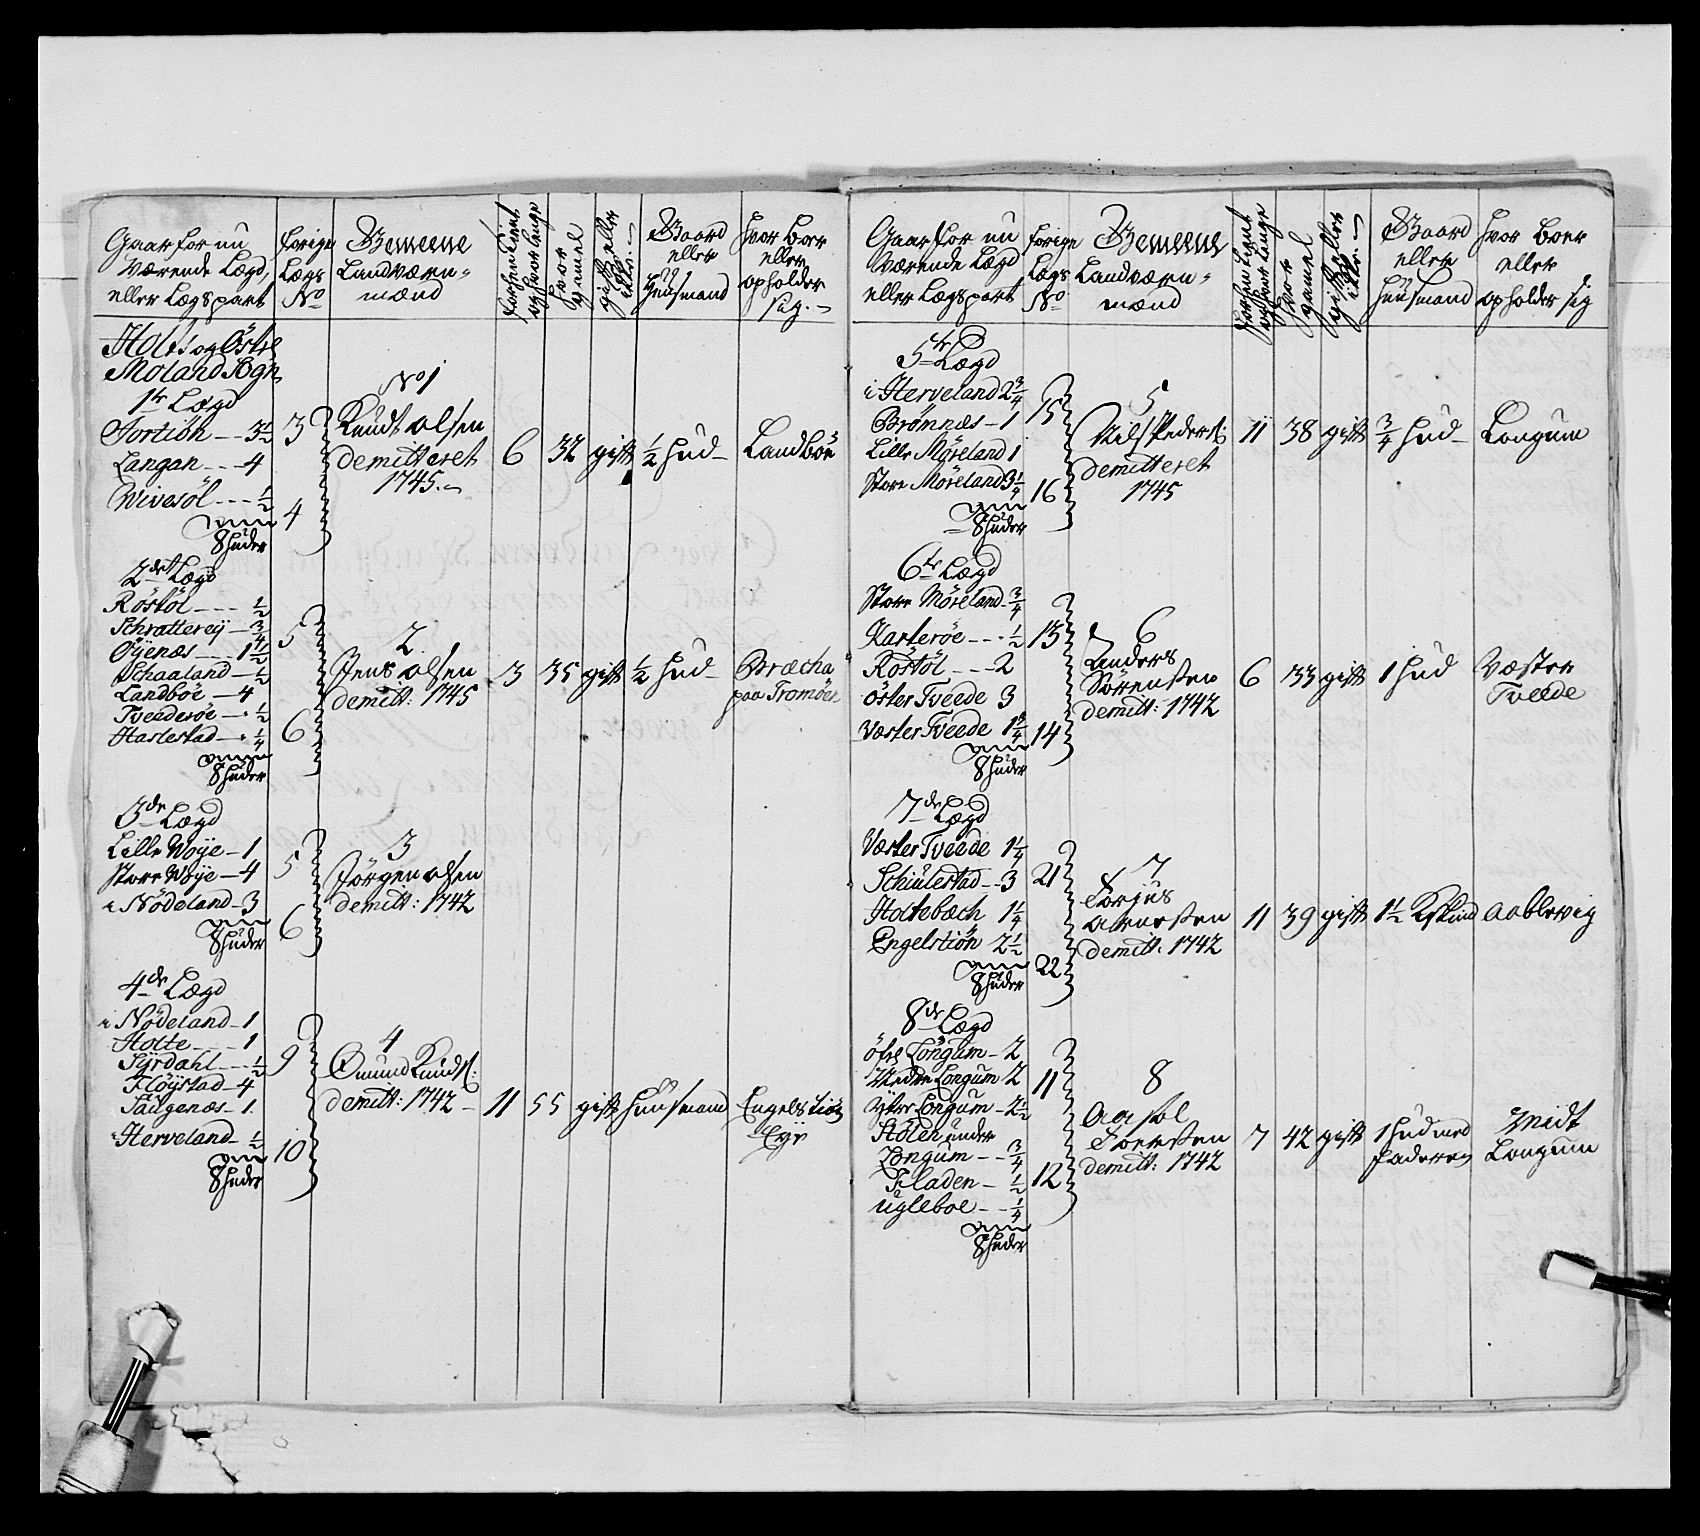 Gaarfor nu
Værende Lægd,
eller Lægspart
forige
Lægs
No
Gemeene
Landværn-
mænd
forhen tient
og hvor lenge
hvor
gamel
gift eller
Gaard
eller
Huusmand
hvor boer
eller
opholder
sig.
Holt og Östre
Moland Sogn
1te Lægd
Fortiön -- 3½
Langan -- 4
Wivesöl --- ½
8 huder
3
4
No 1
Knudt Olsen
demitteret
1745.
6
32
gift
½ hud
Landböe
2det Lægd
Röstöl --- ½
Schratterey - ¾
Öyenæs -- 1½
Schaaland - ½
Landböe - 4
Tveederöe - ½
Haslestad - ¼
8 huder
5
6
2
Jens Olsen
demitt: 1745
3
35
gift
½ hud
Bræcha
paa Tromöen
3de Lægd
Lille Woye - 1
Store Woye - 4
i Nödeland - 3
8 huder
5
6
3
Jörgen Olsen
demitt: 1742
4de Lægd
i Nödeland - 1
Holte --- 1
Syrdahl -- ½
Flöystad - 4
Saugenæs - 1
i Herveland - ½
8 huder
9
10
4
Omund Knuds:
demitt: 1742
11
55
gift
huusmand
Engelstiön
Eye
Gaarfor nu
Værende Lægd
eller Lægspart
forige
Lægs
No
Gemeene
Landværn-
mænd
forhen tient
og hvor lenge
hvor
gamel
gift eller
Gaard
eller
Huusmand
hvor boer
eller
opholder sig
5te Lægd
i Herveland 2¾
Brömnæs - 1
Lille Möreland 1
Store Möreland 3¼
8 huder
15
16
5
Nils Peders:
demitteret
1745
11
38
gift
¾ hud
Longum
6te Lægd
Store Möreland - ¾
Karteröe --- ½
Röstöl --- 2
öster Tveede 3
Væster Tveede 1¾
8 huder
13
14
6
Anders
Sörensen
demitt: 1742
6
33
gift
1 hud
Væster
Tveede
7de Lægd
Væster Tveede 1¼
Schiulestad -- 3
Holtebæch 1¼
Engelstiön 2½
8 huder
21
22
7
Torjus
demitt: 1742
11
39
gift
1½ Kskind
Aoblevig
8de Lægd
öfre Longum - 2
Nedre Longum 2
Ytre Longum - 2½
Holen under
Longum -- ¾
Fladen - ½
Ugleboe -- ¼
8 huder
11
12
8
Aasol
Torersen
demitt: 1742
7
42
gift
1 hud med
faderen
Midt
Longum